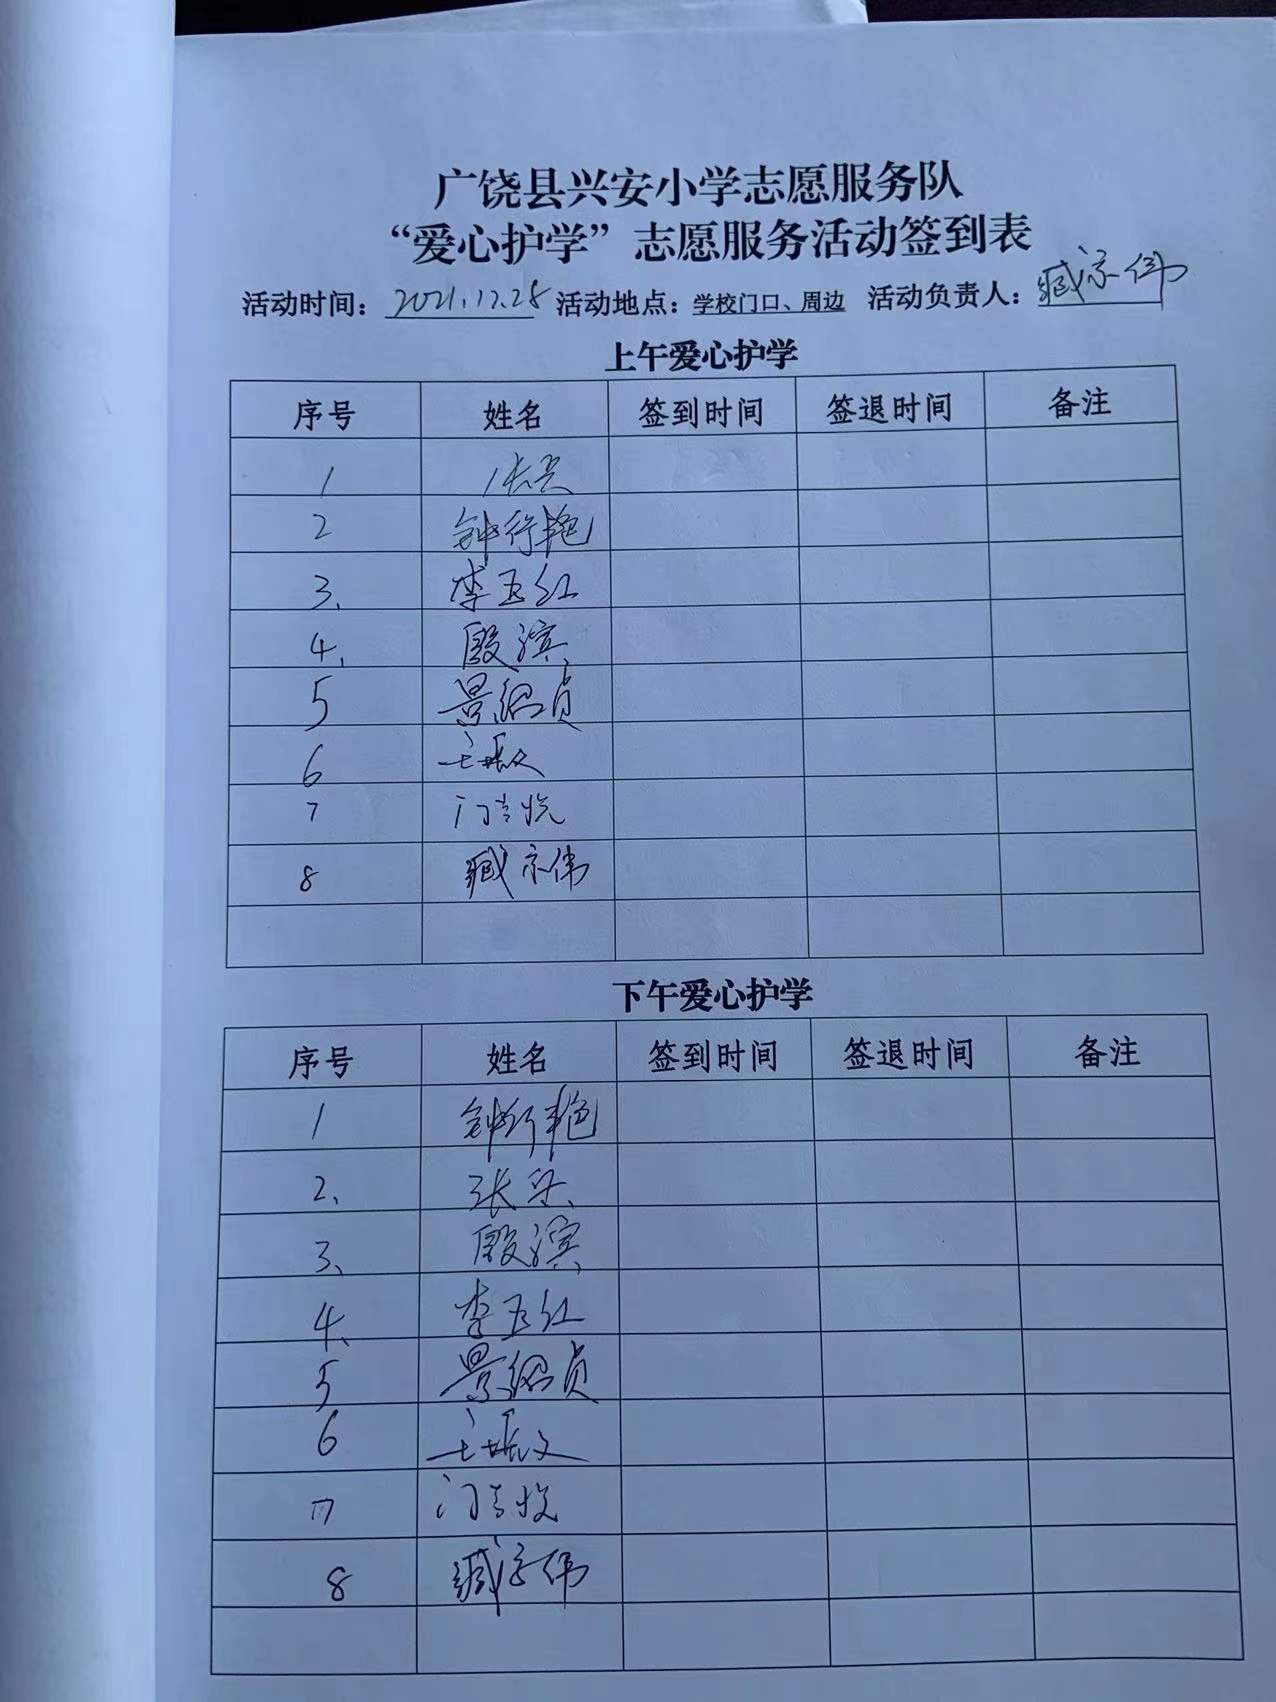 广饶县兴安小学志愿服务队
“爱心护学”志愿服务活动签到表
活动时间：2021.12.28 活动地点：学校门口、周边 活动负责人：臧宗伟
上午爱心护学
序号 姓名 签到时间 签退时间 备注
1
2 钟行艳
3、 李玉红
4、 殷滨
5 景绍贞
6
7
8 臧宗伟
下午爱心护学
序号 姓名 签到时间 签退时间 备注
1 钟行艳
2、
3、 殷滨
4、 李玉红
5 景绍贞
6
7
8 臧宗伟